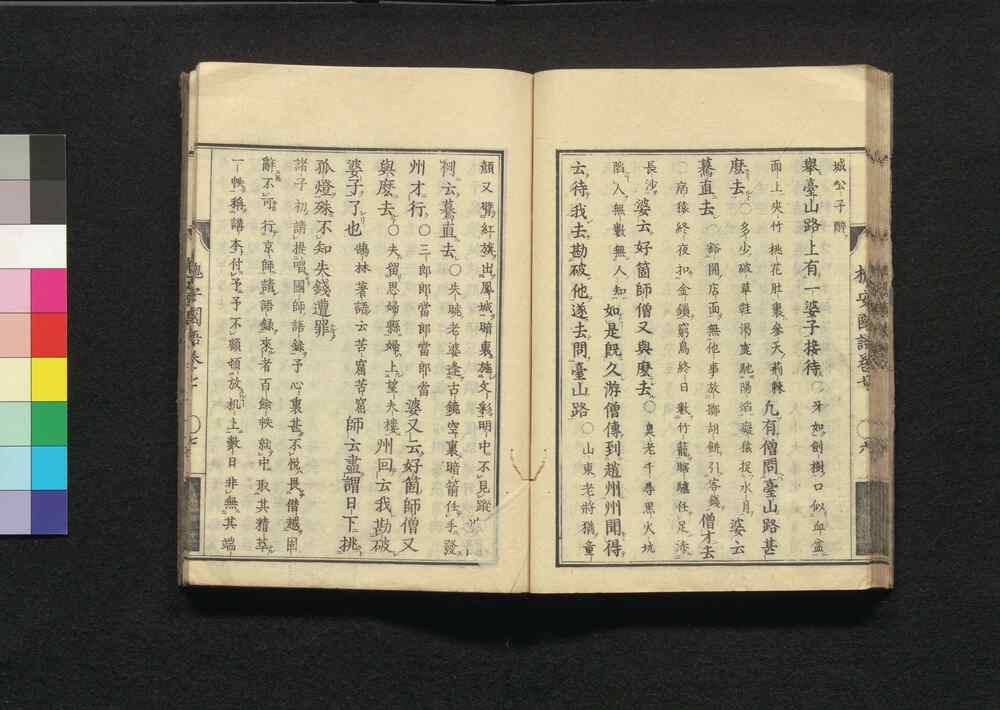 城公子醉
擧臺山路上有一婆子接待〇牙如劍樹口似血盆
面上夾竹桃花肚裏參天荊棘凡有僧問臺山路甚
麼去〇多少破草鞋渴鹿馳陽焰礙猿捉水月婆云
驀直去〇谿開店面無他事故擲胡餅引客錢僧才去
〇病猿終夜扣金鎖窮鳥終日數竹籠瞎驢任足湊
長沙婆云好箇師僧又與麼去〇臭老千尋黑火坑
陷人無數無人知如是旣久游僧傳到趙州州聞得
云待我去勘破他遂去問臺山路〇山東老將猶童
槐安國語卷七
〇六
顏又擎紅旗出鳳城暗裏施文彩明中不見蹤
婆云驀直去〇失曉老婆逢古鏡空裏暗箭任手發
州才行〇三郎郎當郎當郎當婆又云好箇師僧又
與麼去〇夫留思婦縣婦上望夫樓州回云我勘破
婆子了也鵠林著語云苦窟苦窟師云盡謂日下挑
孤燈殊不知失錢遭罪
諸子初請提唱國師語錄予心裏甚不悅畏僭越固
辭不可行京師請語錄來者百餘帙就中取其精草
一帙稱講本付予予不顧頓放机上數日非無其端
槐安國語卷七
〇七